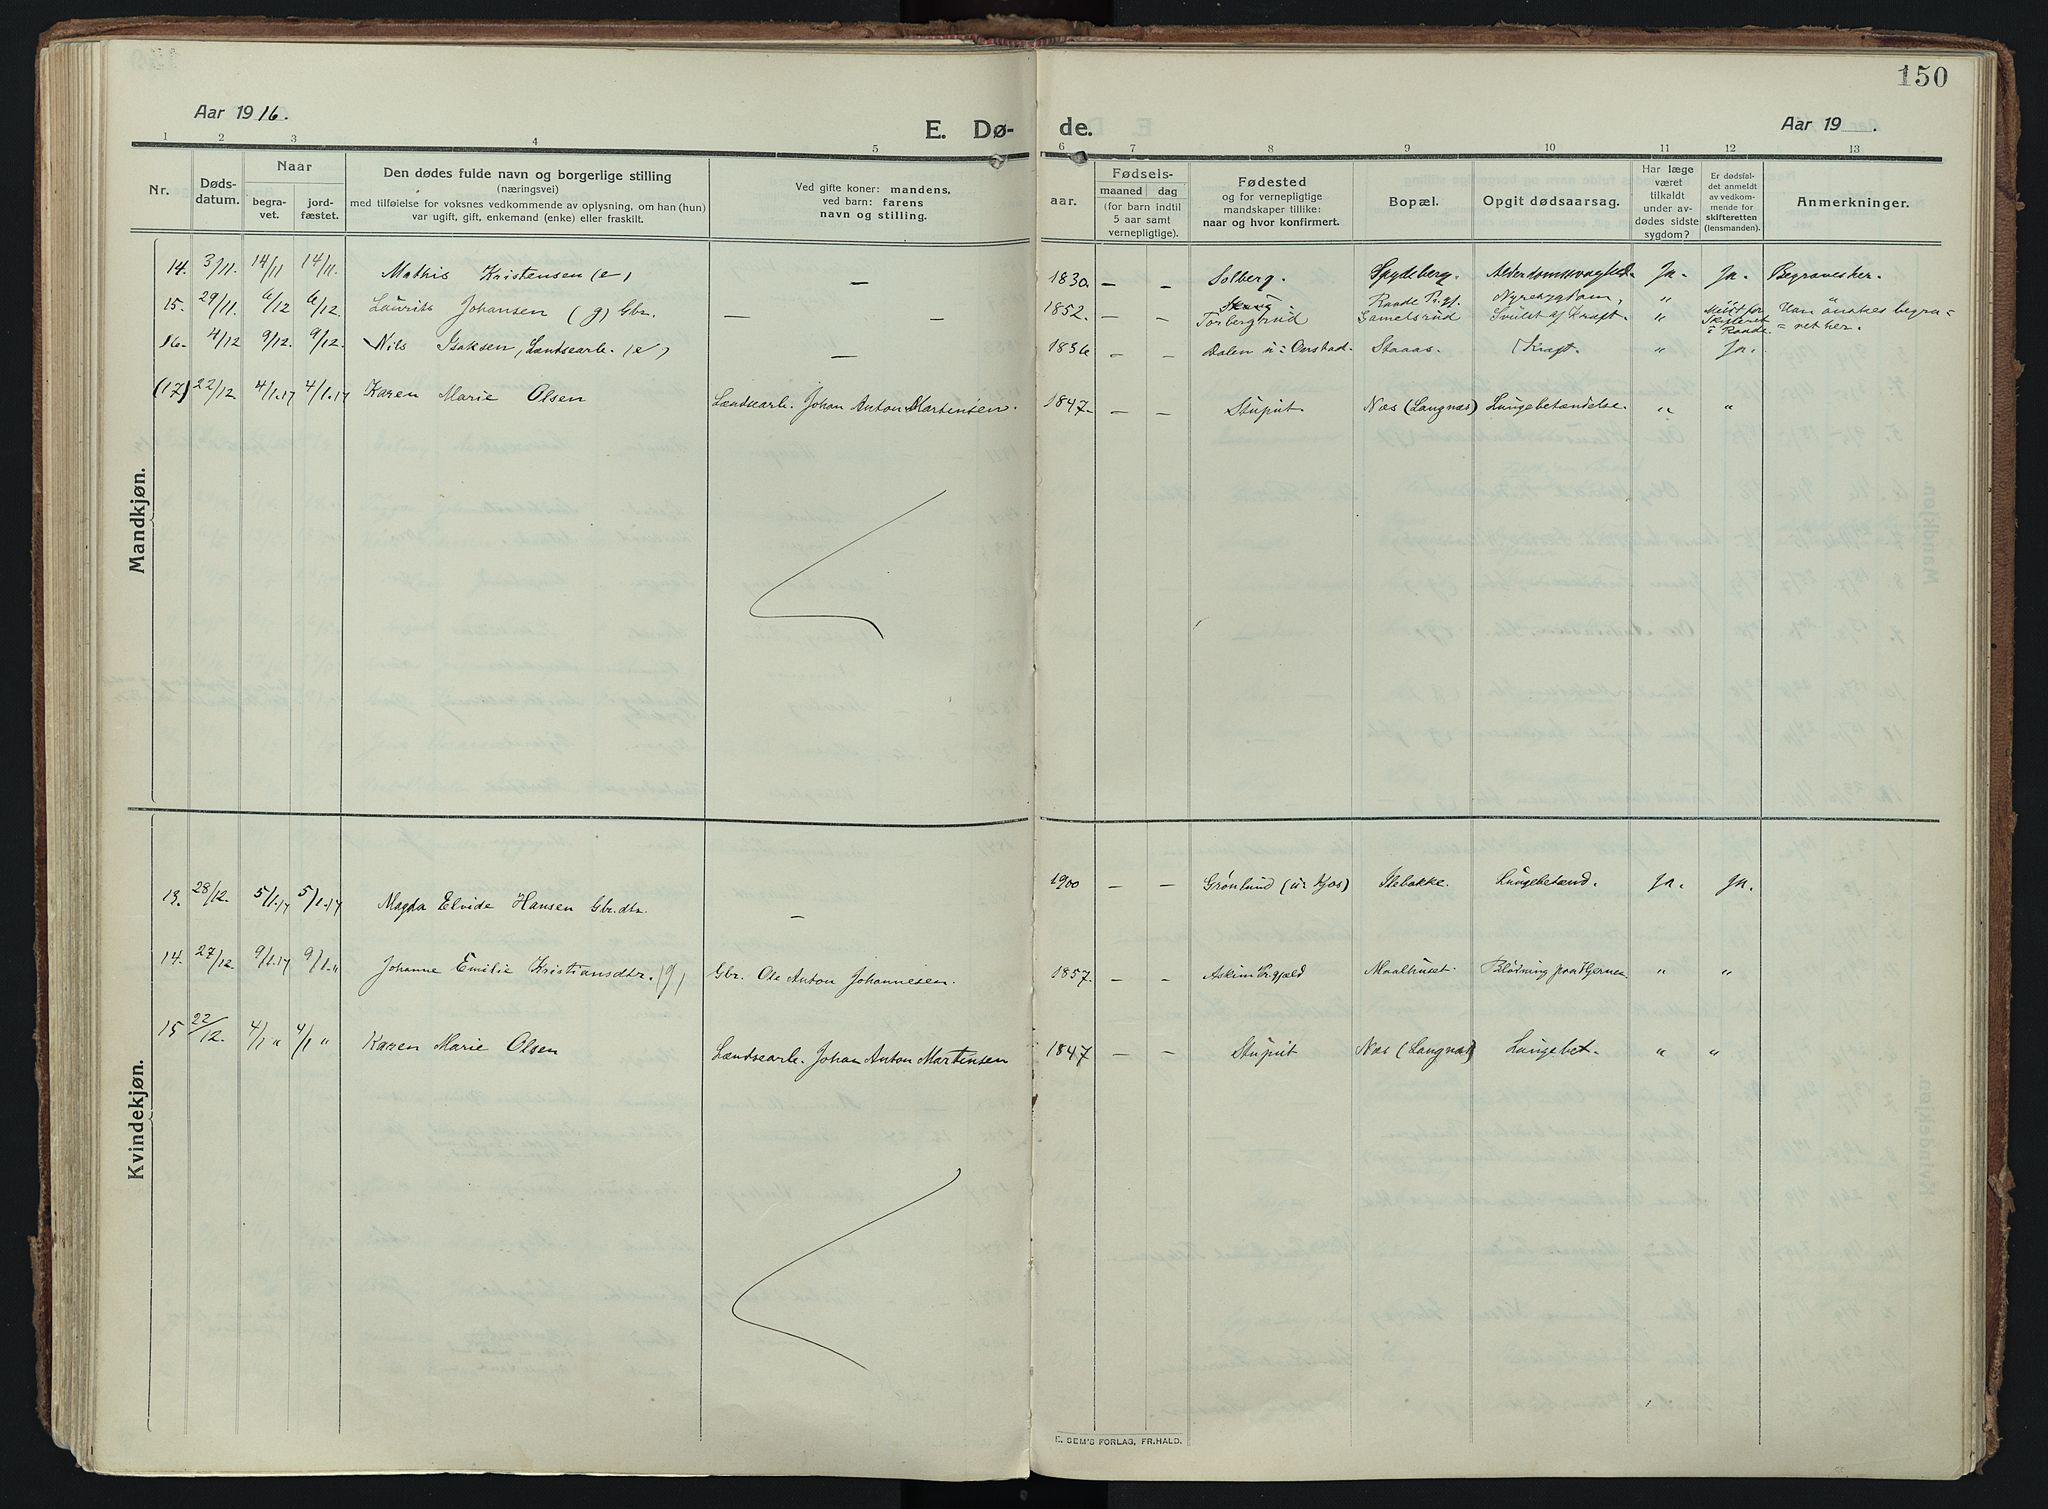 150
Aar 1916.
E. Dø- de.
Aar 19 .
1 2 3 4 5 6 7 8 9 10 11 12 13
Nr.
Døds-
datum.
Naar
begra-
vet.
jord-
fæstet.
Den dødes fulde navn og borgerlige stilling
(næringsvei)
med tilføielse for voksnes vedkommende av oplysning, om han (hun)
var ugift, gift, enkemand (enke) eller fraskilt.
Ved gifte koner: mandens,
ved barn: farens
navn og stilling.
Fødsels-
aar.
maaned dag
(for barn indtil
5 aar samt
vernepligtige).
Fødested
og for vernepligtige
mandskaper tillike:
naar og hvor konfirmert.
Bopæl.
Opgit dødsaarsag.
Har læge
været
tilkaldt
under av-
dødes sidste
sygdom?
Er dødsfal-
det anmeldt
av vedkom-
mende for
skifteretten
(lensmanden).
Anmerkninger.
Mandkjøn.
14. 3/11. 14/11 14/11. Mathis Kristensen (e) — 1830. — — Solberg. Spydeberg. Alderdomssvaghed. Ja. Ja. Begraves her.
15. 29/11. 6/12 6/12. Laurits Johansen (g) Gbr. — — 1852. — — Torbergsrud Raade Gamelsrud Nyresygdom, Svulst af Kræft. " Meldt for Skifteret i Raade. Han ønskes begra=
=vet her.
16. 4/12 9/12. 9/12. Nils Isaksen, Landsearb. (e) — 1836 — — Dalen u: Onstad. Staaas. (Kræft. " Ja.
(17) 22/12 4/1.17 4/1.17 Karen Marie Olsen Landsearb. Johan Anton Martensen. 1847. — — Stuput. Næs (Langnæs) Lungebetændelse. " "
Kvindekjøn.
13. 28/12. 5/1.17 5/1.17 Magda Elvide Hansen Gbr.dtr. — 1900 — — Grønlund (u: Kjos) Stebakke. Lungebetænd. Ja. Ja.
14. 27/12. 9/1.17 9/1." Johanne Emilie Kristiansdtr. (g) Gbr. Ole Anton Johannesen. 1857. — — Askim Prgjæld Maalhuset. Blødning paa Hjernen " "
15 22/12. 4/1 " 4/1 " Karen Marie Olsen Landsearb. Johan Anton Martinsen 1847 — — Stuput Næs (Langnæs) Lungebet. " "
E. SEM'S FORLAG, FR.HALD.